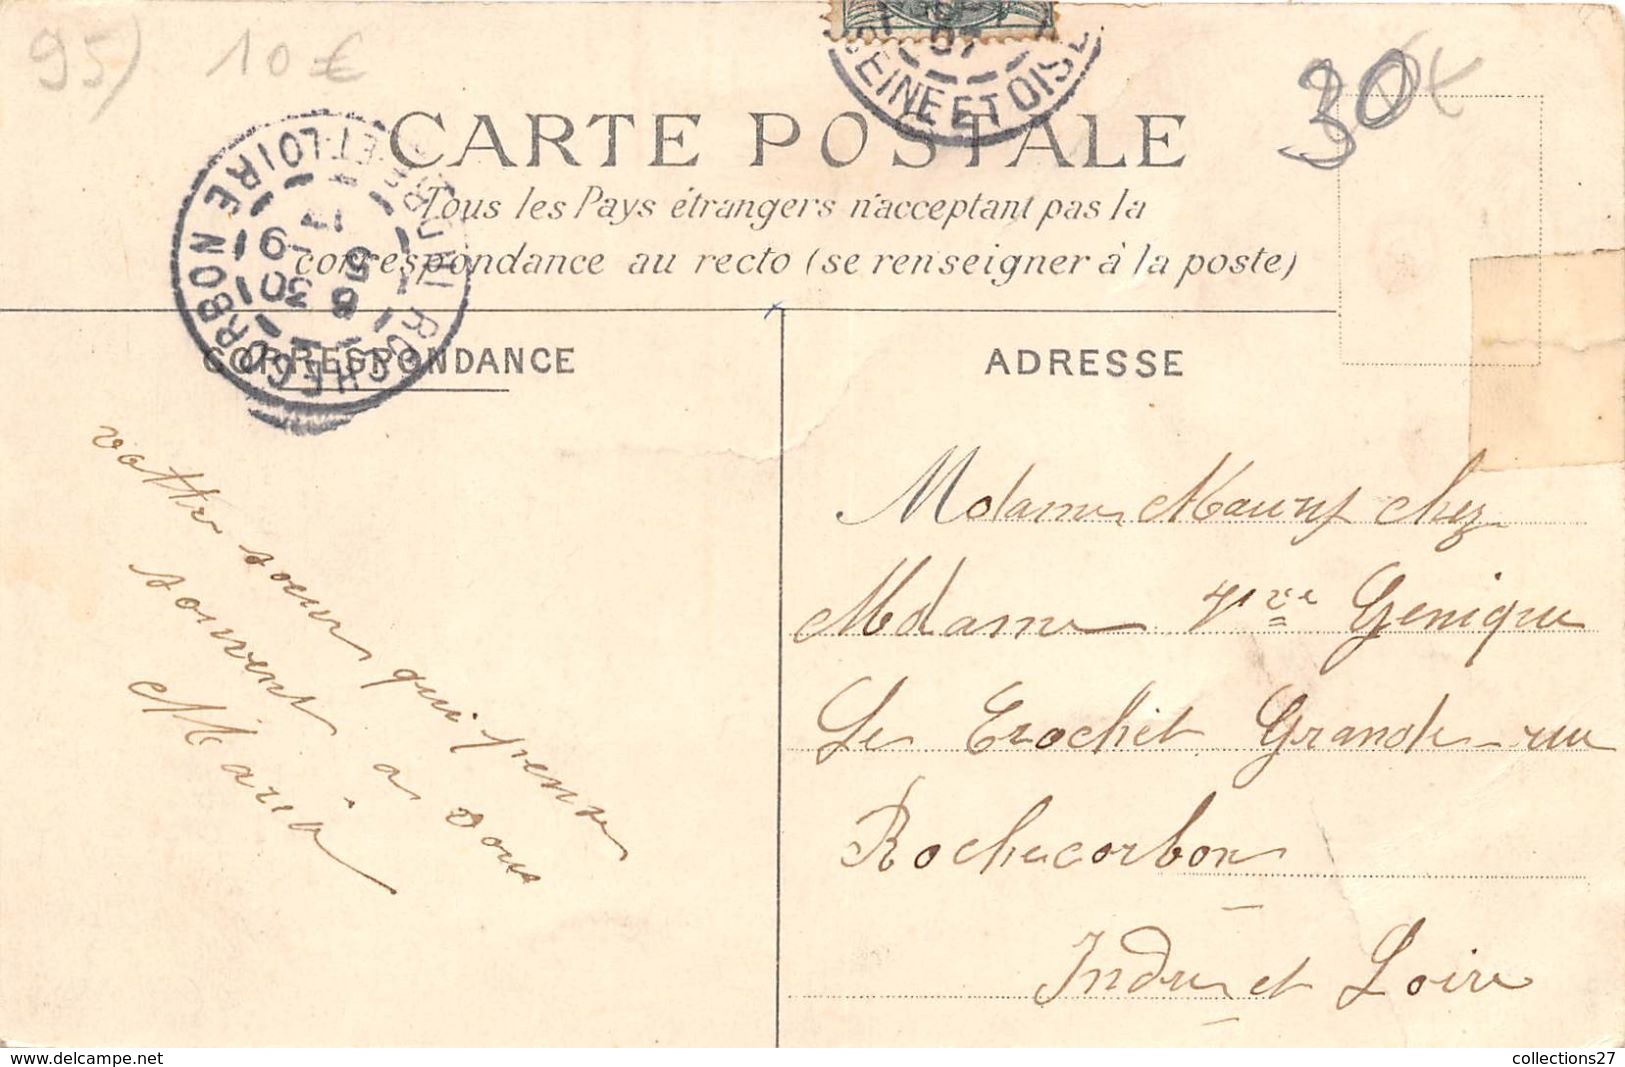 95) 10€
30€
07
SEINE ET OISE
CARTE POSTALE
Tous les Pays étrangers n'acceptant pas la
correspondance au recto (se renseigner à la poste)
ROCHECORBON INDRE ET LOIRE
CORRESPONDANCE
ADRESSE
vottre soeur qui pense
souvent a vous
Maria
Madame Maury chez
Madame Vve Genique
Le Crochet Grande rue
Rochecorbon
Indre et Loire
collections27